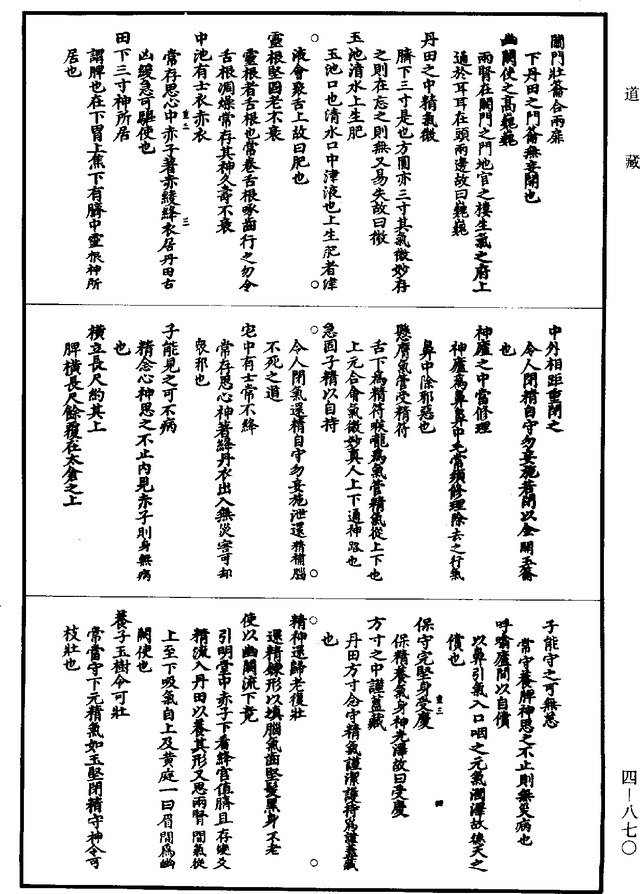 道藏
關門壯籥合兩扉
下丹田之門籥無妄開也
幽闕使之高巍巍
兩腎在關門之門地官之樓生氣之府上
通於耳耳在頭兩邊故曰巍巍
丹田之中精氣微
臍下三寸是也方圓亦三寸其氣微妙存
之則在忘之則無又易失故曰微
玉池清水上生肥
玉池口也清水口中津液也上生肥者津
液會聚舌上故曰肥也
靈根堅固老不衰
靈根者舌根也常卷舌根啄齒行之勿令
舌根凋燥常存其神久壽不衰
中池有士衣赤衣
重二 三
常存思心中赤子著赤綾絳衣居丹田古
凶緩急可驅使也
田下三寸神所居
謂脾也在下胃上焦下有臍中靈根神所
居也
中外相距重閉之
令人閉精自守勿妄施若閉以金關玉籥
也
神廬之中當修理
神廬為鼻鼻中毛常須修理除去之行氣
鼻中除邪惡也
懸膺氣管受精符
舌下為精符喉嚨為氣管精氣從上下也
上元合會氣微妙真人上下通神路也
急固子精以自持
令人閉氣還精自守勿妄施泄還精補腦
不死之道
宅中有士常不絳
常存思心神著絳丹衣出入無災害可却
衆邪也
子能見之可不病
精念心神思之不止內見赤子則身無病
也
橫立長尺約其上
脾橫長尺餘覆在太倉之上
子能守之可無恙
常守養脾神思之不止則無災病也
呼噏廬間以自償
以鼻引氣入口咽之元氣潤澤故德天之
償也
保守完堅身受慶
重三 四
保精養氣身神光澤故曰受慶
方寸之中謹蓋藏
丹田方寸念守精氣謹潔護持為謹蓋藏
也
精神還歸老復壯
還精鍊形以填腦氣齒堅髮黑身不老
使以幽闕流下竟
引明堂中赤子下着絳宮值臍且存變爻
精流入丹田以養其形又思兩腎間氣從
上至下吸氣自上及黃庭一曰眉間為幽
闕使也
養子玉樹令可壯
常當守下元精氣如玉堅閉精守神令可
枝壯也
四—八七〇